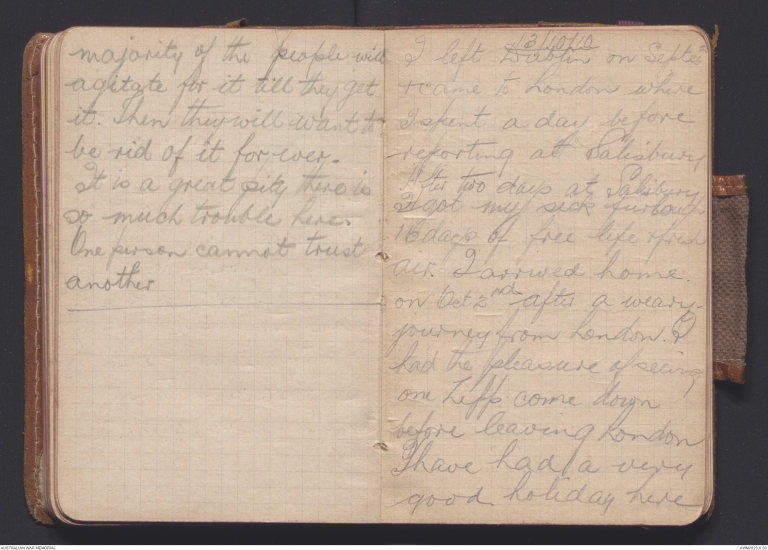 majority of the people will
agitate for it till they get
it. Then they will want to
be rid of it for-ever.
It is a great pity there is
so much trouble here.
One person cannot trust
another
I left Dublin on
& came to London where
I spent a day before
reporting at Salisbury
After two days at Salisbury
I got my sick furlough
16 days of free life & fresh
air. I arrived home.
on Oct 2nd after a weary
journey from London. I
had the pleasure of seeing
one Zepp come down
before leaving London
I have had a very
good holiday here
AUSTRALIAN WAR MEMORIAL